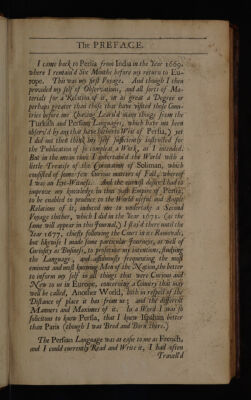 The PREFACE.
I came back to Persia from India in the Year 1669.
where I remain'd Six Months before my return to Eu-
rope. This was my first Voyage. And though I then
provided my self of Observations, and all sorts of Ma-
terials for a Relation of it, in as great a Degree or
perhaps greater than those that have visited those Coun-
tries before me (having Learn'd many things from the
Turkish and Persian Languages, which have not been
observ'd by any that have hitherto Writ of Persia,) yet
I did not then think my self sufficiently instructed for
the Publication of so compleat a Work, as I intended.
But in the mean time I entertain'd the World with a
little Treatise of the Coronation of Soliman, which
consisted of some few Curious matters of Fact, whereof
I was an Eye-Witness. And the earnest desire I had to
improve my knowledge in that vast Empire of Persia,
to be enabled to produce to the World useful and Ample
Relations of it, induced me to undertake a Second
Voyage thither, which I did in the Year 1671. (as the
same will appear in this Journal,) I stay'd there until the
Year 1677, chiefly following the Court in its Removals,
but likewise I made some particular Journeys, as well of
Curiosity as Business, to prosecute my intentions, studying
the Language, and assiduously frequenting the most
eminent and most knowing Men of the Nation, the better
to inform my self in all things that were Curious and
New to us in Europe, concerning a Country that may
well be called, Another World, both in respect of the
Distance of place it has from us; and the different
Manners and Maximes of it. In a Word I was so
sollicitous to know Persia, that I knew Ispahan better
than Paris (though I was Bred and Born there.)
The Persian Language was as easie to me as French,
and I could currently Read and Write it, I had often
Travail'd